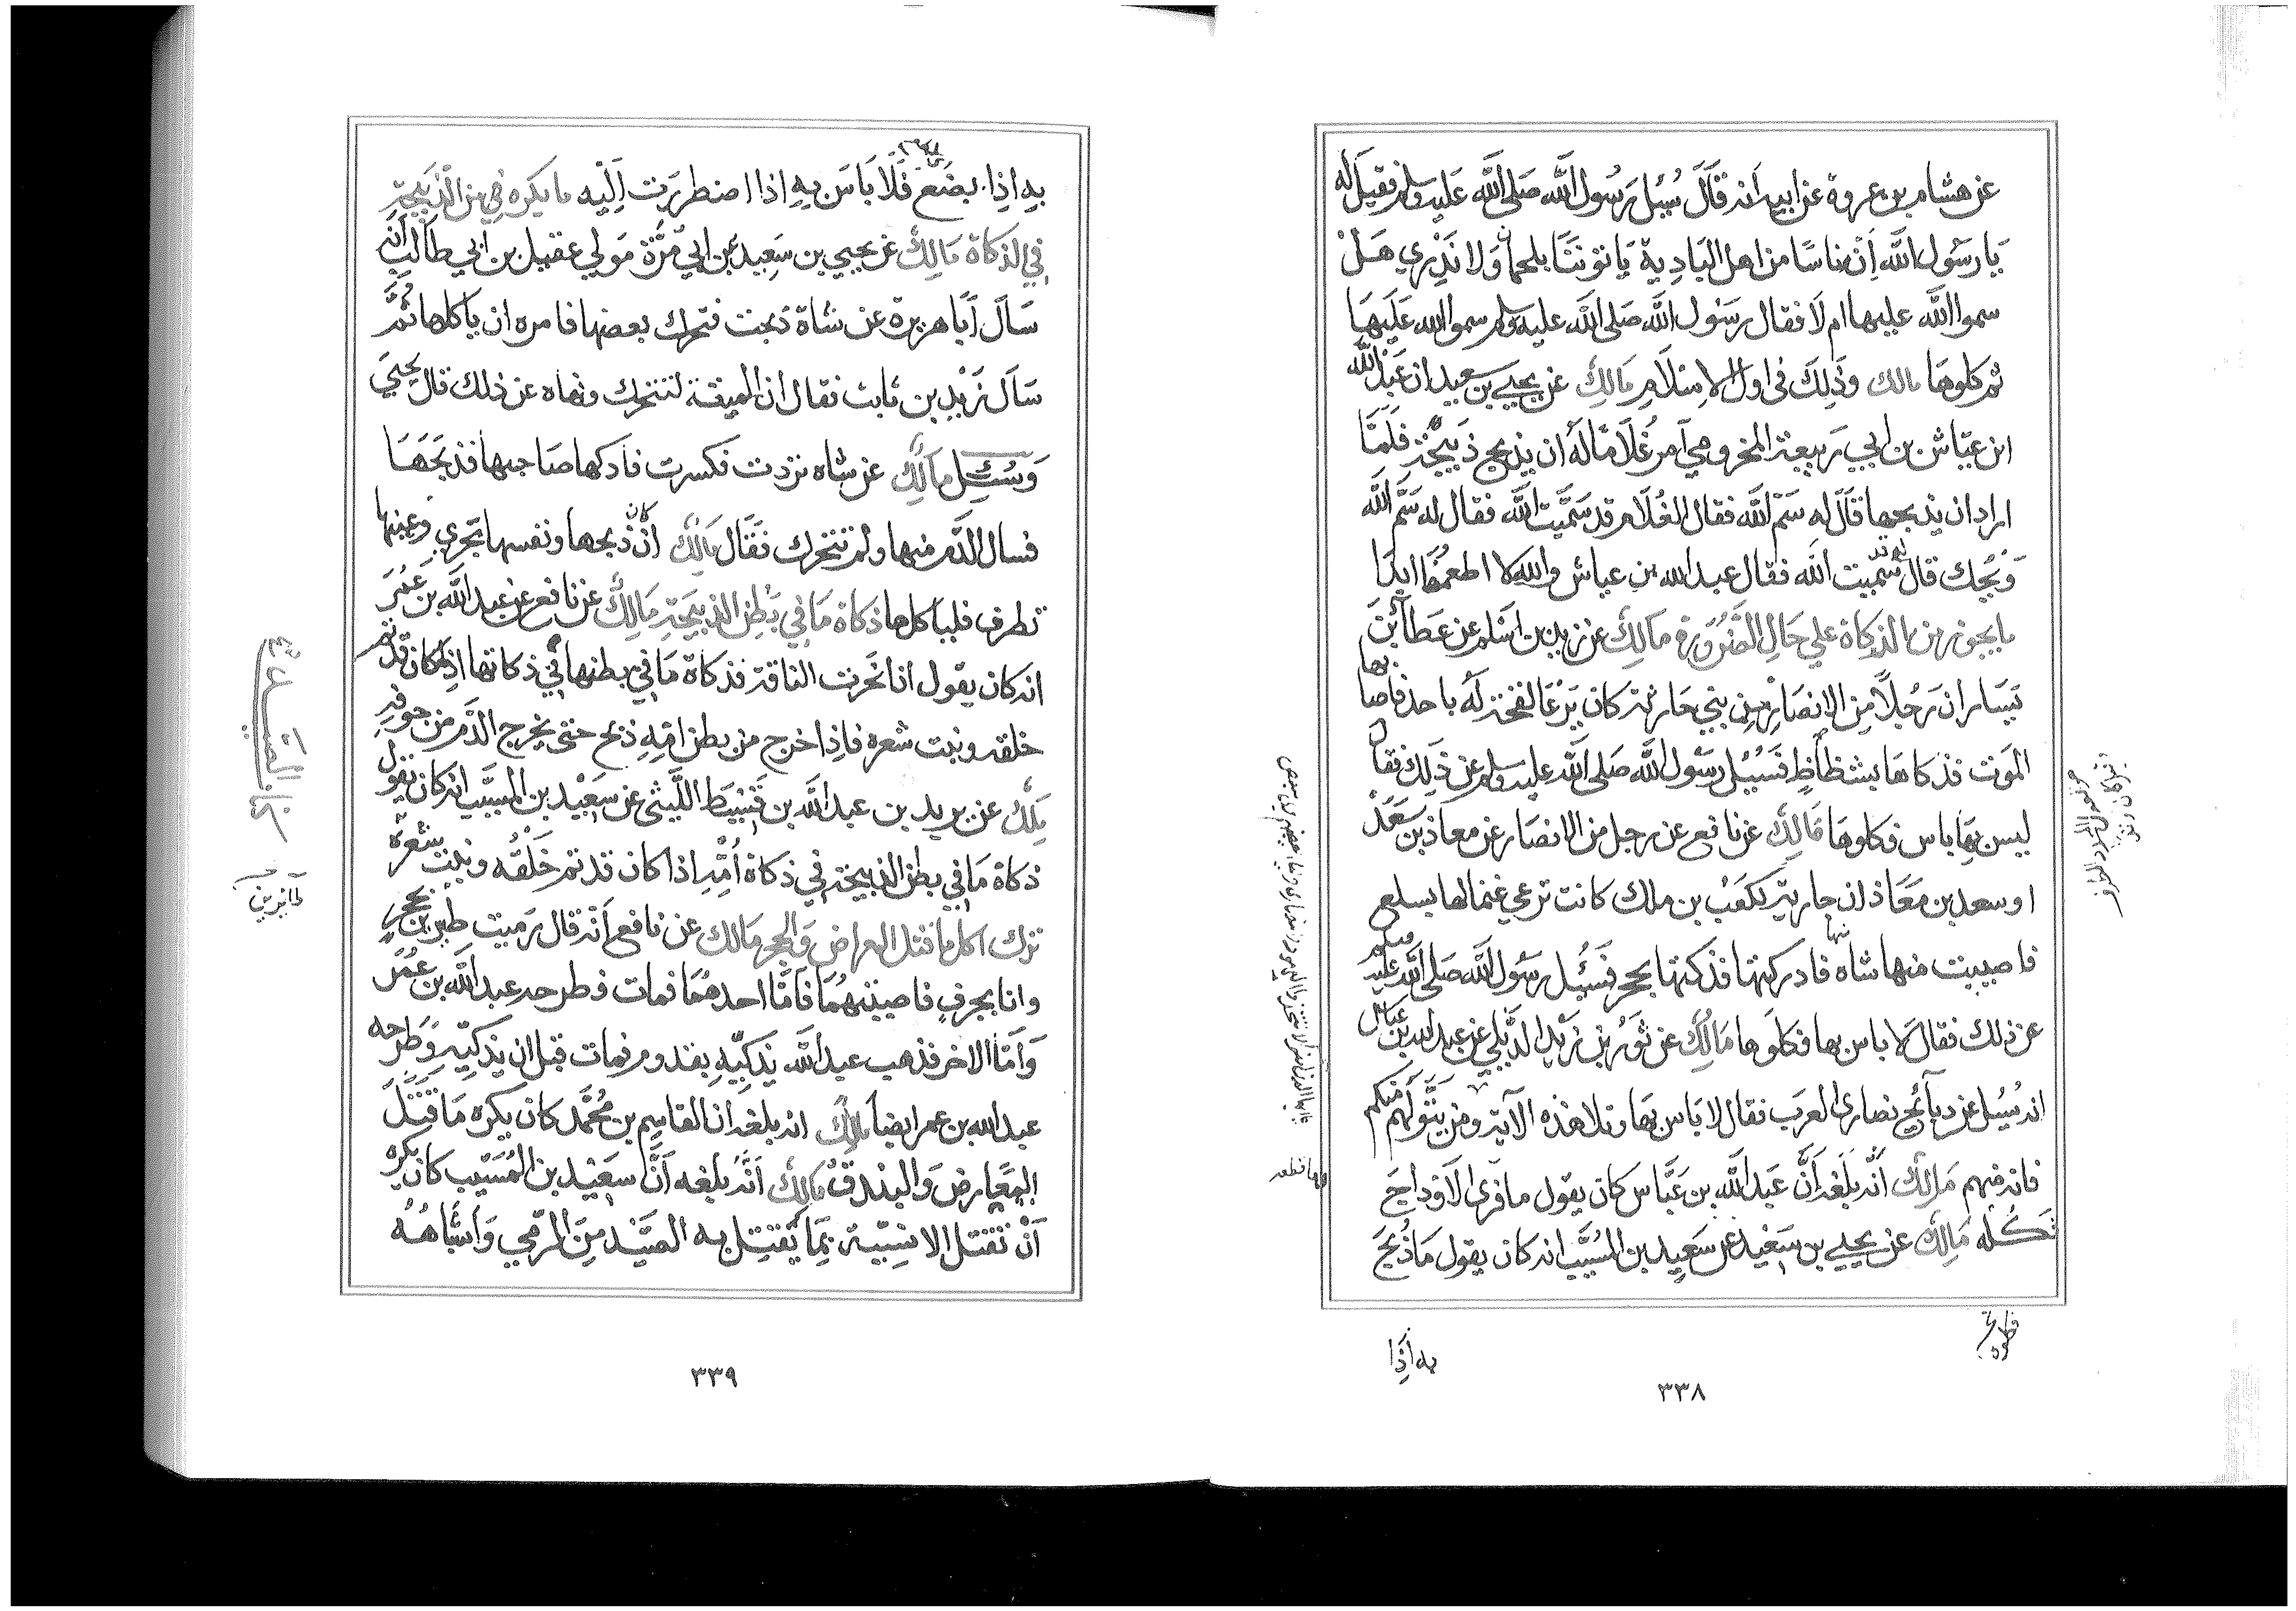 عن هشام بن عروة عن ابيه انه قَالَ سُئِلَ رَسُول اللَّه صَلى اللَّه عَليه وسلم فقيل له
يَا رسَوُل اللَّه اِنّ ناسًا من اهل البَادِية يَاتوننَا بلحمان وَلا نَدْرِي هَلْ
سموا اللَّه عليها ام لَا فقال رسَوُل اللَّه صَلى اللَّه عليه وسلم سموا الله عَلَيهَا
ثم كلوهَا مالك وَذَلِكَ فى اول الاِسْلَام مَالِكِ عن يحيى بن سعيد ان عَبْد اللَّه
ابن عيّاش بن ابي رَبِيعة المخزومي اَمرَ غُلَامًا لَهُ ان يذبح ذَبيْحَة فَلَمَّا
اراد ان يذبحها قَالَ له سَمّ اللَّه فقال الغُلَام قد سَمَّيت اللَّه فقال له سَمّ اللَّه
وَيْحك قال له قد سَمّيت اللَّه فقال عبد الله بن عياش والله لا اطعمهَا ابدًا
ما يجوز من الذكاة علي حَال الضَّرُورَة مَالِكُ عن زيد بن اسْلم عن عَطَآء بْن
يَسَار ان رَجُلًا مِن الانصَار من بني حَارثة كان يَرْعَا لقحَة لَهُ باحد فاصابها
المَوت فذكاهَا بشظَاظٍ فَسُئِل رسَوُل اللَّه صَلى اللَّه عليه وسلم عن ذَلِك فقال
ليس بهَا باس فكلوهَا مَالِكُ عن نافع عن رجل من الانصَار عن معاذ بن سَعْد
او سعد بن معَاذ ان جارية لكعَبْ بن ملك كانت ترعي غنما لها بسلع
فاصيبت منها شاه فادركتها فذكتها بحجر فسُئِل رسَوُل اللَّه صَلى اللَّه عليه وسلم
عن ذلك فقال لَا باس بها فكلوَها مَالُك عن ثَوْر بن زَيْد الدَّيْلي عن عبد الله بن عبّاس
انه سُئِل عن ذبآئح نصارى العرَب فقال لا بَاس بهَا وتلا هذه الآية ومن يَتَولَّهم منكم
فانه منهم مَالِك اَنَّه بلَغَه اَنَّ عَبد اللَّه بن عَبَّاس كان يقول ما فرى الاَوْدَاج
فَكُله مَالِك عن يحيى بن سَعِيْد عن سَعيد بن المُسَيَّب انه كان يقول مَا ذُبحَ
به اذا
٣٣٨
بِه اِذا بضَع فَلَا بَاسَ بِهِ اذا اضطررَت اِلَيْه ما يكره من الذَبيحَة
فِي الذكَاة مَالِكُ عن يحيي بن سَعيد عن ابي مُرَّة مَولي عقيل بن ابي طَالبٍ اَنه
سَالَ اَبَا هريرة عن شاة ذبحت فتحرك بعضها فامره ان ياكلها ثُمَّ
سَاَلَ زَيْد بن ثابت فقال ان الميتة لتتحرك ونهاه عن ذلك قال يَحيَي
وَسُئِل مَالِكُ عن شاه تردت فكسرت فادركها صَاحبها فذبَحَهَا
فسال الدَّم منها ولم تتحرك فقَال مَالِكُ اَنْ كان ذبحها ونفسها تَجري وعينها
تطرف فلياكلها ذكاة مَا فِي بَطِن الذبيحَة مَالِكُ عن نافع عن عبد اللَّه بن عُمَرَ
انه كان يقول اذا نحَرت الناقة فذكاة مَا فِي بطنها فِي ذكاتها اذا كان قد تم
خلقه ونبت شعره فاِذا خرج من بطن اُمّهِ ذبح حتى يخرج الدَّم من جَوفهِ
مَلكُ عن يزيد بن عبد اللَّه بن قسَيط اللَّيثى عن سَعيْد بن المسَيَّب انه كان يَقول
ذكاة مَا فِي بطن الذبيحَة فِي ذكاة اُمِّه اذا كان قد تم خَلْقُه ونبت شَعْرُهُ
ترك اكل ما قتل المعراض وَالحجر مَالك عن نافع اَنّه قال رَميْت طيرين بحَجَر
وانا بالجرفِ فاصبتهُمَا فاَمَّا احدهُمَا فمات فطرحه عبد اللَّه بن عُمَر
وَاَمَّا الاخر فذهب عبد اللَّه يذكيّهِ بقدوم فمات قبل ان يذكيّهِ وَطَرحه
عبد الله بن عمر ايضًا مَالِكُ انه بلغه ان القاسم بن مُحمَّد كان يكره مَا قَتَلَ
المعَارض وَالبندقُ مَالِكُ اَنَّهُ بَلَغه اَنَّ سعَيْد بن المُسَيْب كان يكره
اَنْ تقتل الانسِيّة بِمَا يُقتِل به الصَّيْد مِنَ الرّمي وَاَشْبَاهُه
٣٣٩